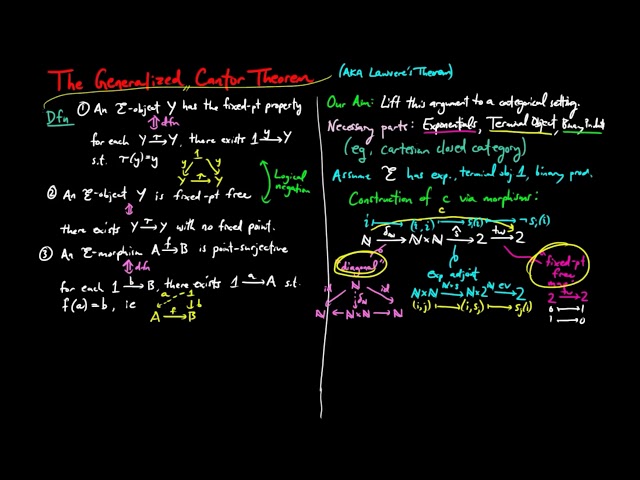 The Generalized Cantor Theorem
(AKA Lawvere's Theorem)
Dfn ① An ℰ-object Y has the fixed-pt property
⇕ dfn
for each Y –τ→ Y, there exists 1 –y→ Y
s.t. τ(y)=y
1
y y
Y –τ→ Y
Logical negation
② An ℰ-object Y is fixed-pt free
⇕
there exists Y –τ→ Y with no fixed point.
③ An ℰ-morphism A –f→ B is point-surjective
⇕ dfn
for each 1 –b→ B, there exists 1 –a→ A s.t.
f(a)=b, ie
a 1
b
A –f→ B
Our Aim: Lift this argument to a categorical setting.
Necessary parts: Exponentials, Terminal Object, Binary Products
(eg, cartesian closed category)
Assume ℰ has exp., terminal obj 1, binary prod.
Construction of c via morphisms:
c
i → (i,i) → sᵢ(i) → ¬sᵢ(i)
ℕ –δ_ℕ→ ℕ×ℕ –ŝ→ 2 –tw→ 2
"diagonal"
ℕ
id δ_ℕ id
ℕ ← ℕ×ℕ → ℕ
exp adjoint
ℕ×ℕ –ℕ×s→ ℕ×2^ℕ –ev→ 2
(i,j) ↦ (i,sⱼ) ↦ sⱼ(i)
fixed-pt
free
2 –tw→ 2
0 ↦ 1
1 ↦ 0